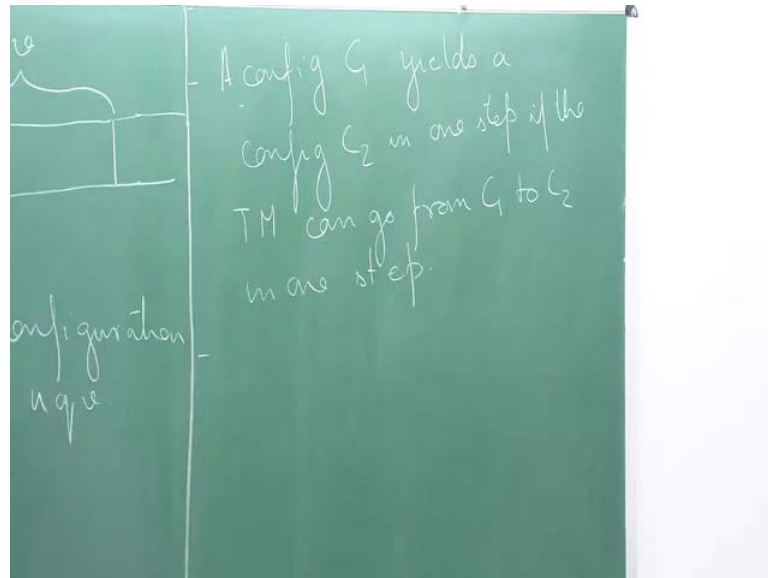 v
onfiguration
uqv.
- A config C1 yields a
config C2 in one step if the
TM can go from C1 to C2
in one step.
-